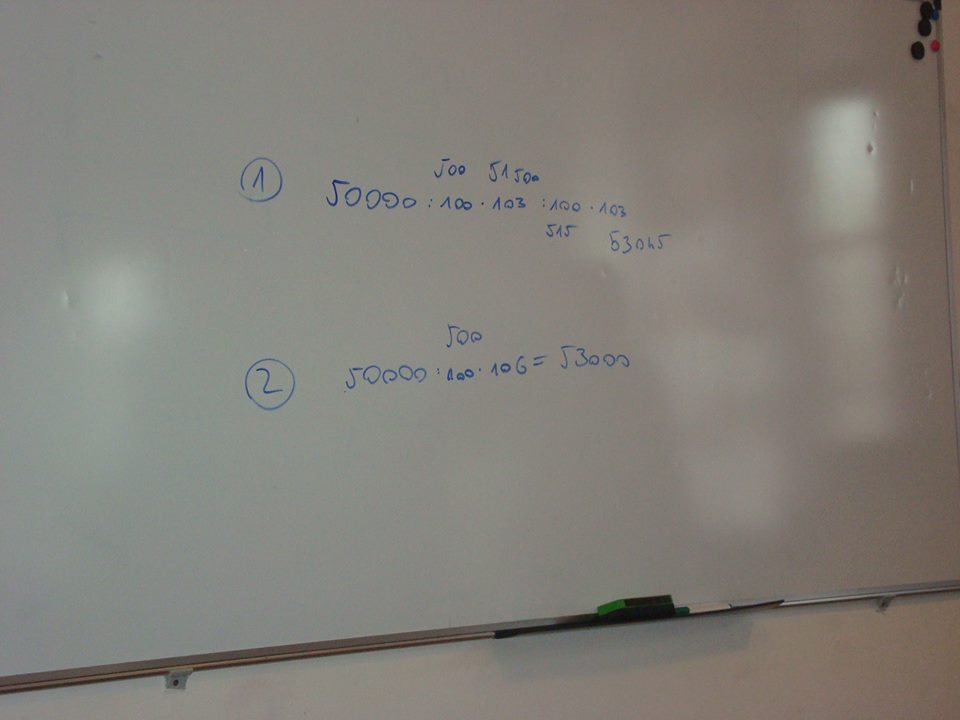 1
500 51500
50000 : 100 · 103 : 100 · 103
515 53045
500
2
50000 : 100 · 106 = 53000